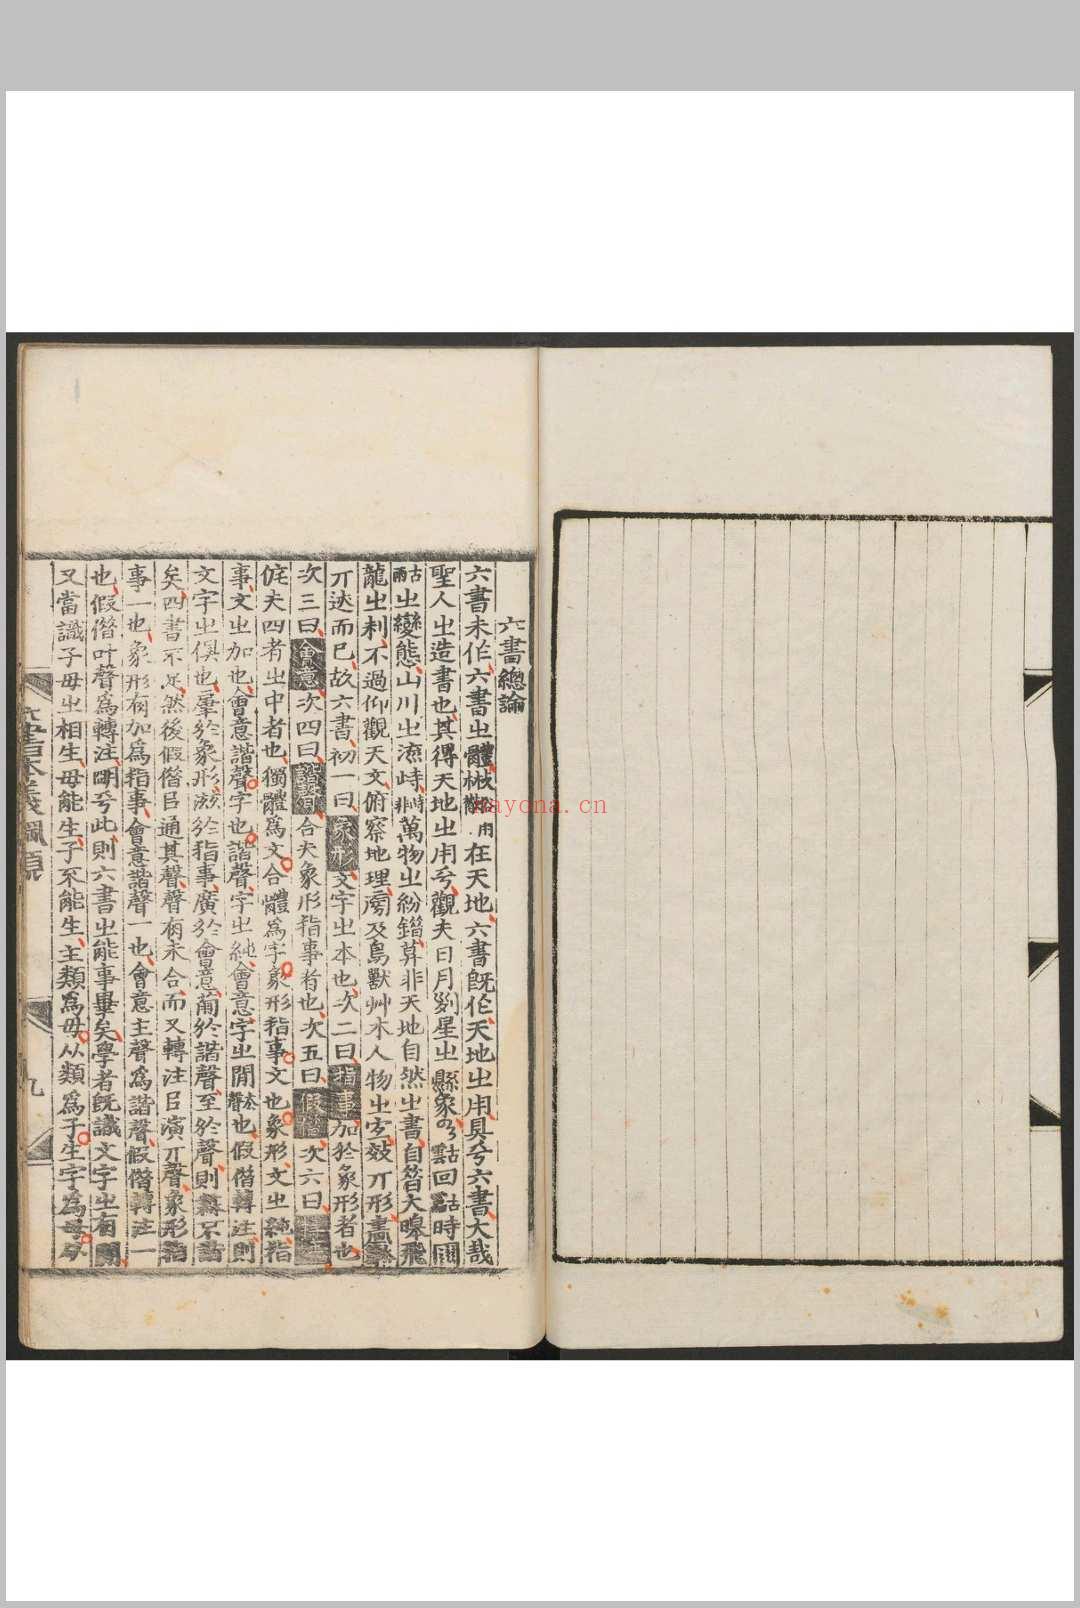 六書總論
六書未作六書㞢體在天地六書旣作天地㞢用具兮六書大哉
聖人㞢造書也其得天地㞢用兮觀夫日月列星㞢縣象雲回時
雨㞢變態山川㞢流峙萬物㞢紛錯莫非天地自然㞢書自昔大皞飛
龍㞢利不過仰觀天文俯察地理㫄及鳥獸艸木人物㞢宐效丌形畫
丌迹而已故六書初一曰象形文字㞢本也次二曰指事加於象形者也
次三曰會意次四曰諧聲合夫象形指事者也次五曰假借次六曰
侂夫四者㞢中者也獨體爲文合體爲字象形指事文也象形文㞢純指
事文㞢加也會意諧聲字也諧聲字㞢純會意字㞢閒也假借轉注則
文字㞢俱也肇於象形滋於指事廣於會意葡於諧聲至於聲則無不諧
矣四書不足然後假借㠯通其聲聲有未合而又轉注㠯演丌聲象形
事一也象形有加爲指事會意諧聲一也會意主聲爲諧聲假借轉注一
也假借叶聲爲轉注明兮此則六書㞢能事畢矣學者旣識文字㞢有
又當識子母㞢相生母能生子不能生主類爲母从類爲子生字爲母
六書本義綱領
九
nayona.cn